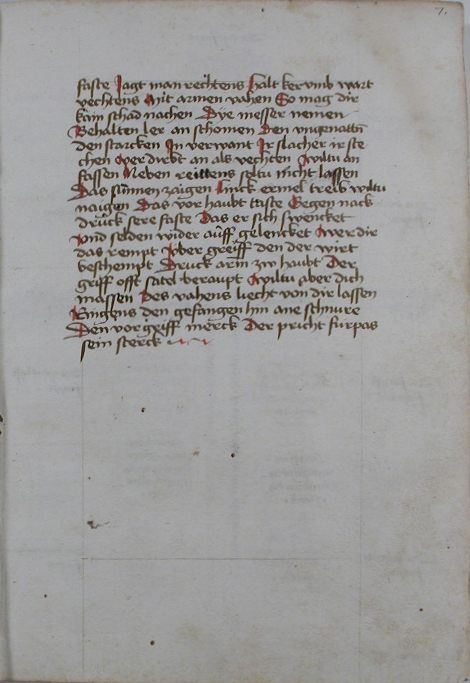 7.
faste Jagt man rechtens halt kervmb wart
vechtens Mit armen vahen So mag dir
kain schad nachen Dye messer nemen
Behalten ler an schomen Den vngenattn̄
den starcken In verwant Ir slacher ir ste
chen Verdirbt an als vechten Wiltu an
fassen Neben reittens seltu nicht lassen
Das sunnen zaigen Linck ermel treib wiltu
naigen Das vor haubt taste Gegen nack
druck sere faste Das er sich swencket
Vnd selden wider auff gelencket Wer dir
das rempt Vber greiff den der wirt
beschempt Druck arm zw haubt Der
griff offt satel beraupt Wiltu aber dich
massen Des vahens liecht von dir lassen
Ringens den gefangen hin ane schnure
Den vorgriff merck Der pricht furpas
sein sterck